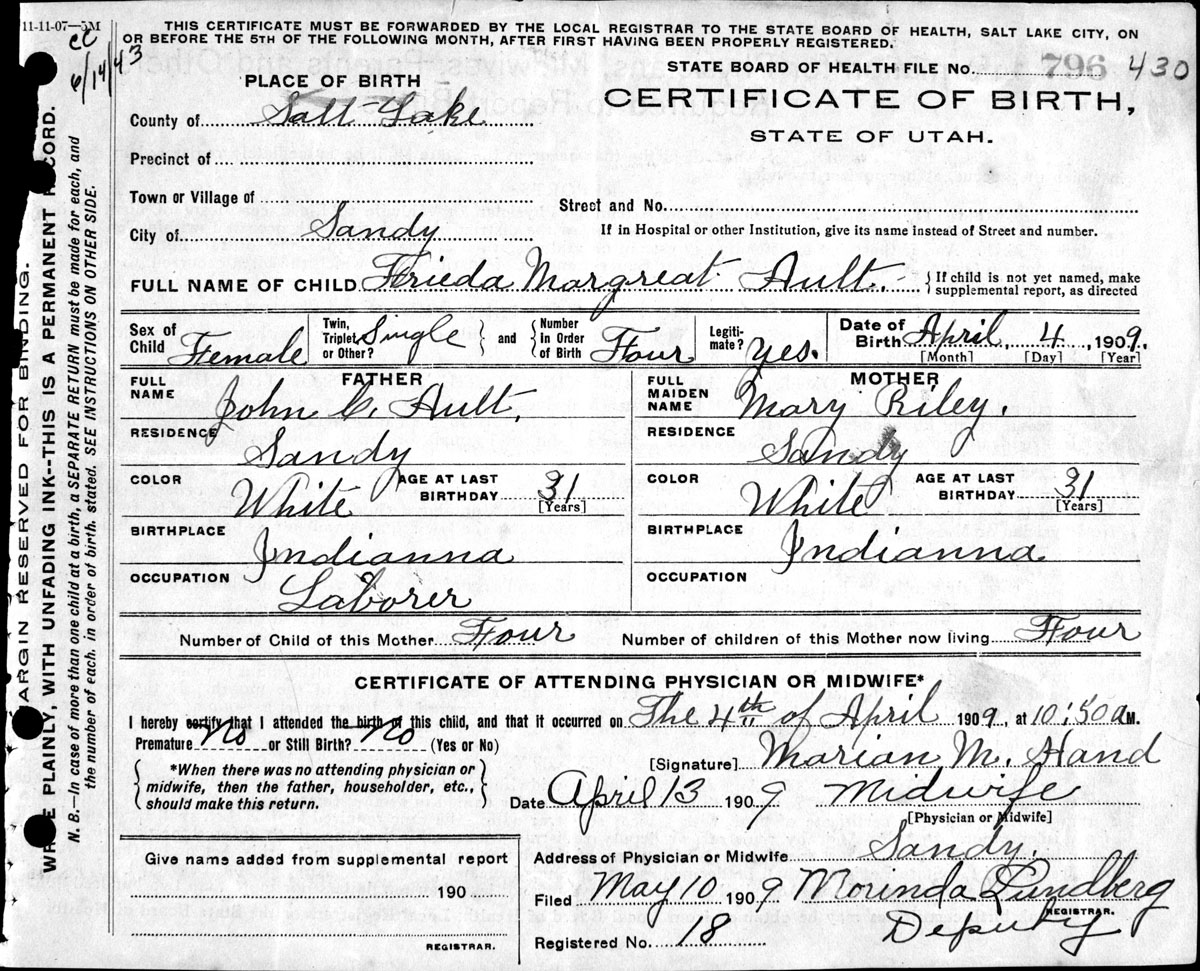 11-11-07—5M
cc
6/14/43
THIS CERTIFICATE MUST BE FORWARDED BY THE LOCAL REGISTRAR TO THE STATE BOARD OF HEALTH, SALT LAKE CITY, ON
OR BEFORE THE 5TH OF THE FOLLOWING MONTH, AFTER FIRST HAVING BEEN PROPERLY REGISTERED.
STATE BOARD OF HEALTH FILE No. 796 430
PLACE OF BIRTH
CERTIFICATE OF BIRTH,
STATE OF UTAH.
County of Salt Lake
Precinct of
Town or Village of
Street and No.
City of Sandy
If in Hospital or other Institution, give its name instead of Street and number.
FULL NAME OF CHILD Frieda Margreat Ault. { If child is not yet named, make
supplemental report, as directed
Sex of Child Female
Twin, Triplet or Other? Single } and { Number In Order of Birth Four
Legiti-mate? Yes.
Date of Birth April, 4, 1909.
[Month] [Day] [Year]
FATHER
FULL NAME John C. Ault,
RESIDENCE Sandy
COLOR White AGE AT LAST BIRTHDAY 31
[Years]
BIRTHPLACE Indianna
OCCUPATION Laborer
MOTHER
FULL MAIDEN NAME Mary Riley.
RESIDENCE Sandy
COLOR White AGE AT LAST BIRTHDAY 31
[Years]
BIRTHPLACE Indianna
OCCUPATION
Number of Child of this Mother Four Number of children of this Mother now living Four
CERTIFICATE OF ATTENDING PHYSICIAN OR MIDWIFE*
I hereby certify that I attended the birth of this child, and that it occurred on The 4th of April 1909, at 10:50 AM.
Premature No or Still Birth? No (Yes or No)
[Signature] Marian M. Hand
{ *When there was no attending physician or
midwife, then the father, householder, etc.,
should make this return. }
Date April 13 1909 Midwife
[Physician or Midwife]
Give name added from supplemental report
190
REGISTRAR.
Address of Physician or Midwife Sandy.
Filed May 10 1909 Morinda Lundberg
REGISTRAR.
Deputy
Registered No. 18
MARGIN RESERVED FOR BINDING.
WRITE PLAINLY, WITH UNFADING INK--THIS IS A PERMANENT RECORD.
N. B.—In case of more than one child at a birth, a SEPARATE RETURN must be made for each, and
the number of each. in order of birth. stated. SEE INSTRUCTIONS ON OTHER SIDE.